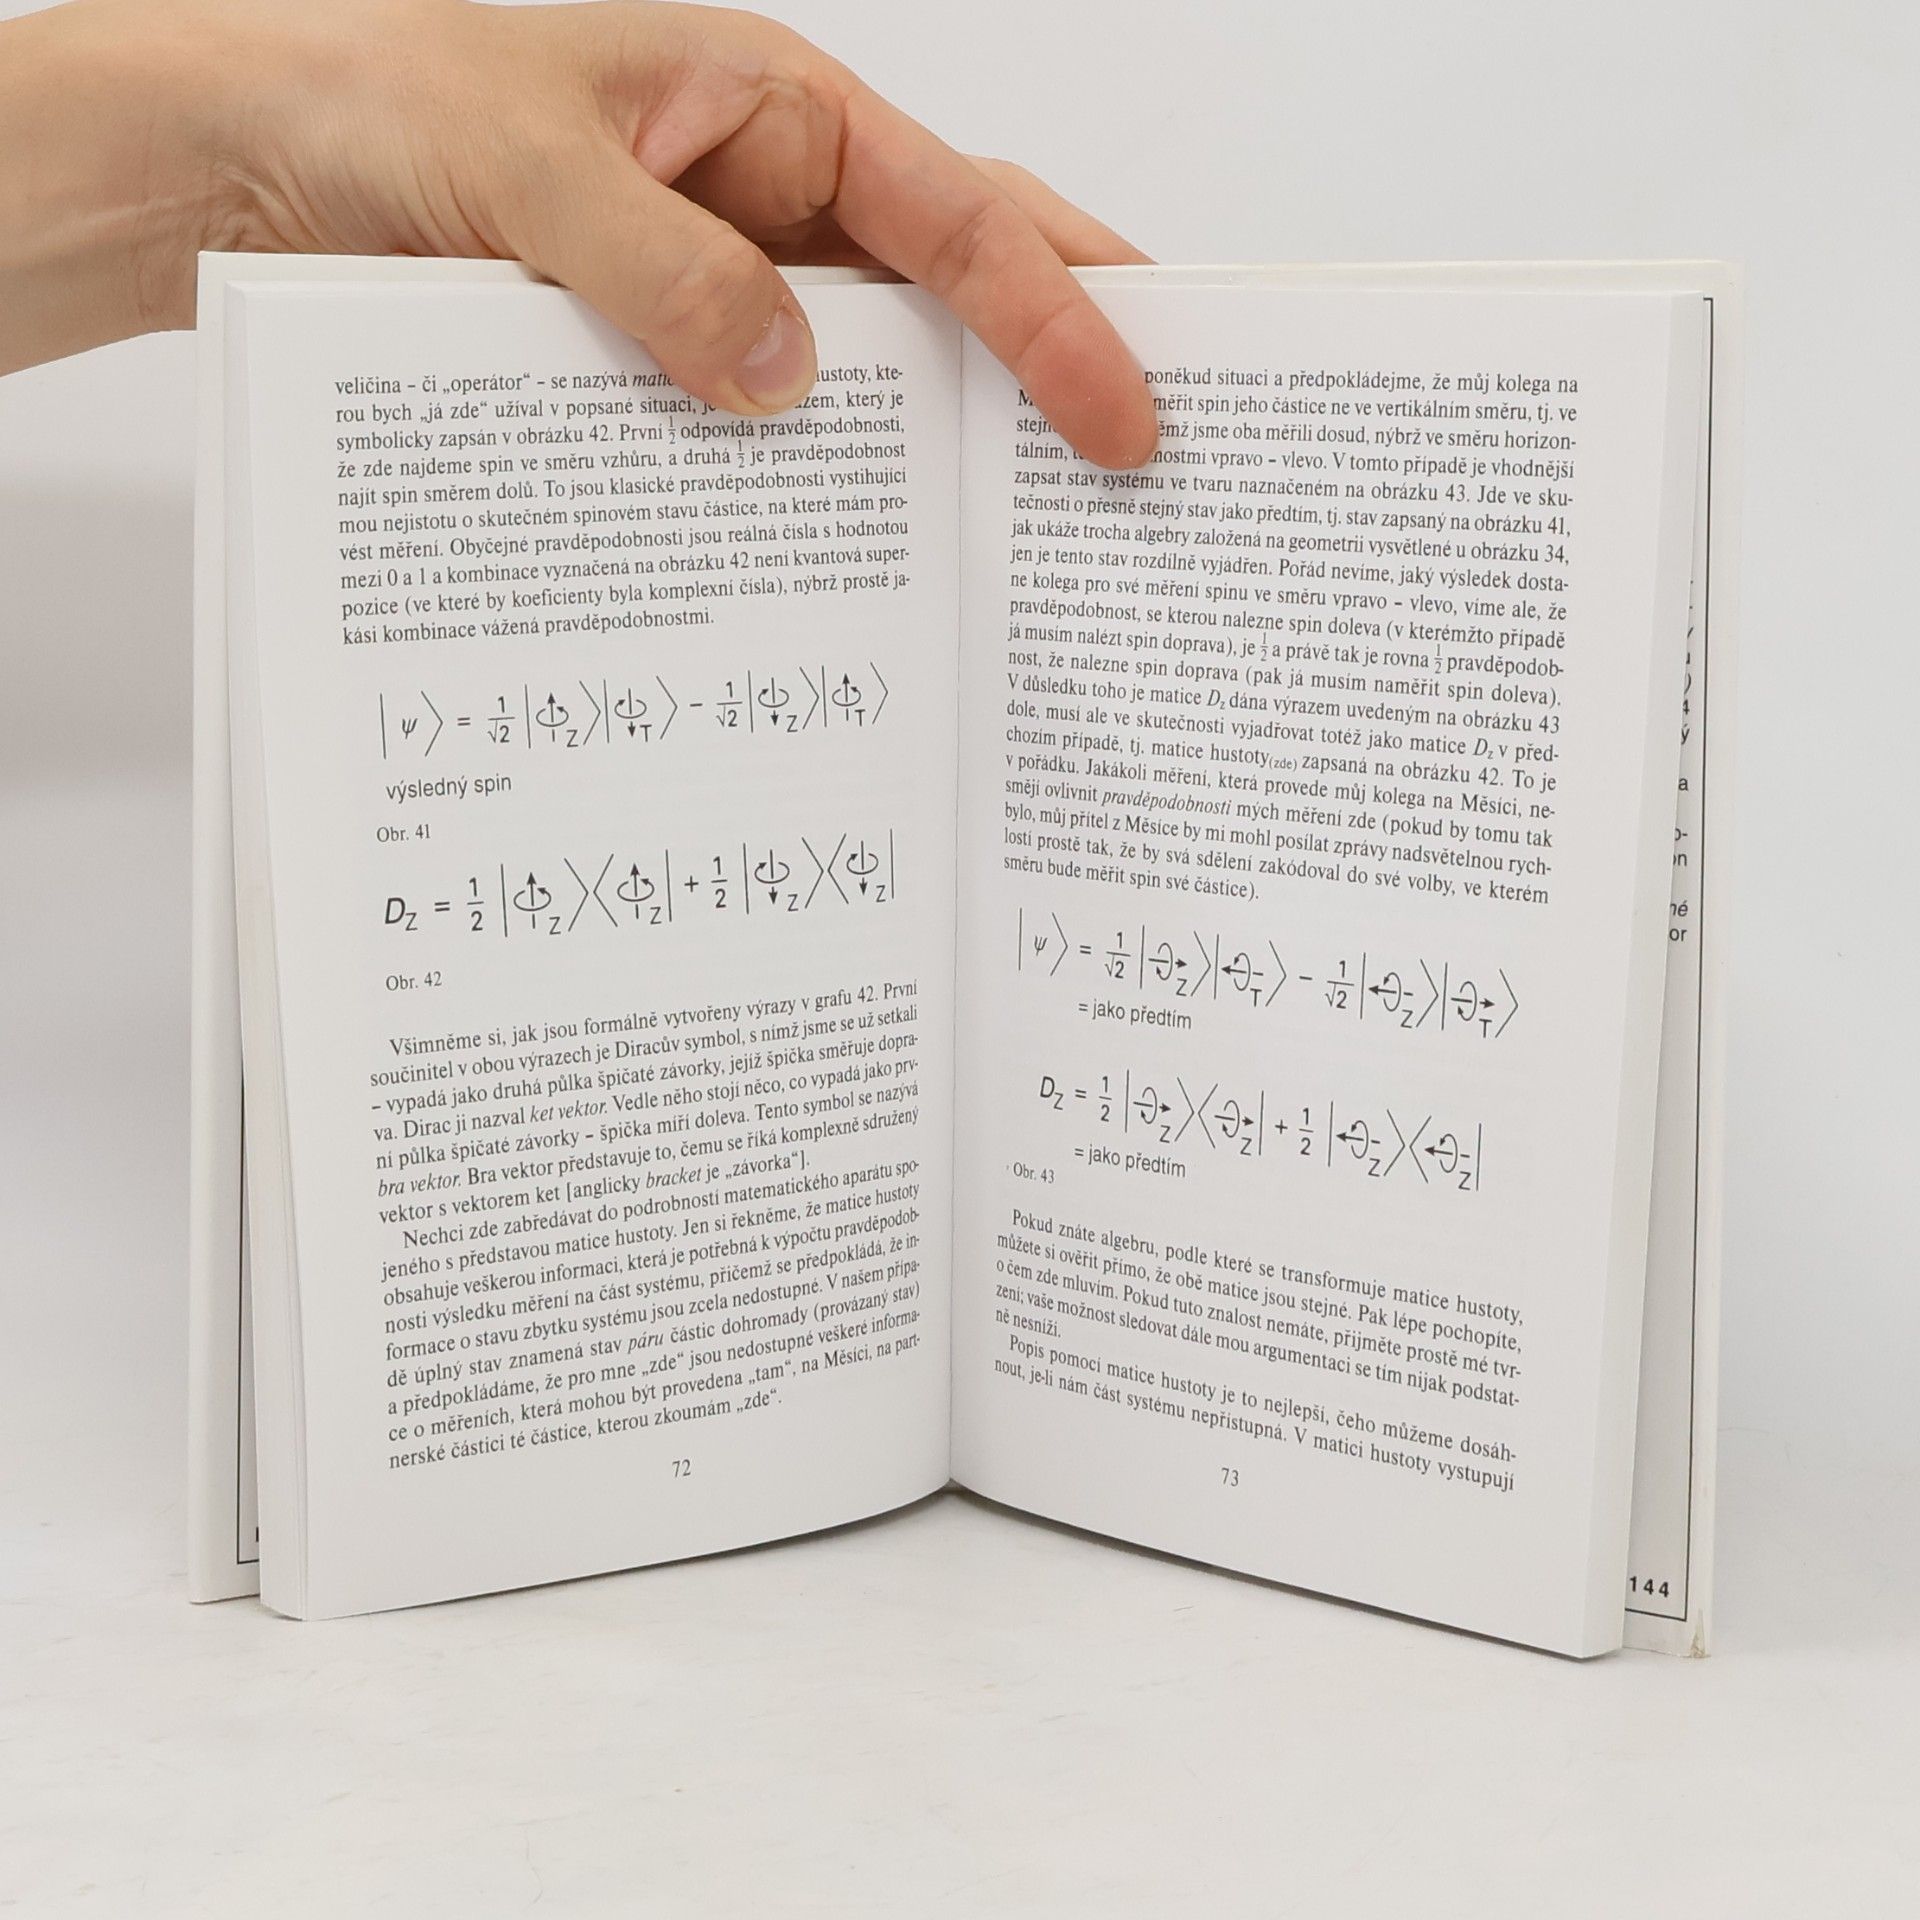 veličina – či „operátor“ – se nazývá hustoty, kte-
rou bych „já zde“ užíval v popsané situaci, který je
symbolicky zapsán v obrázku 42. První 1/2 odpovídá pravděpodobnosti,
že zde najdeme spin ve směru vzhůru, a druhá 1/2 je pravděpodobnost
najít spin směrem dolů. To jsou klasické pravděpodobnosti vystihující
mou nejistotu o skutečném spinovém stavu částice, na které mám pro-
vést měření. Obyčejné pravděpodobnosti jsou reálná čísla s hodnotou
mezi 0 a 1 a kombinace vyznačená na obrázku 42 není kvantová super-
pozice (ve které by koeficienty byla komplexní čísla), nýbrž prostě ja-
kási kombinace vážená pravděpodobnostmi.
|ψ⟩ = 1/√2 | Z⟩| T⟩ – 1/√2 | Z⟩| T⟩
výsledný spin
Obr. 41
D_Z = 1/2 | Z⟩⟨ Z| + 1/2 | Z⟩⟨ Z|
Obr. 42
Všimněme si, jak jsou formálně vytvořeny výrazy v grafu 42. První
součinitel v obou výrazech je Diracův symbol, s nímž jsme se už setkali
– vypadá jako druhá půlka špičaté závorky, jejíž špička směřuje dopra-
va. Dirac ji nazval ket vektor. Vedle něho stojí něco, co vypadá jako prv-
ní půlka špičaté závorky – špička míří doleva. Tento symbol se nazývá
bra vektor. Bra vektor představuje to, čemu se říká komplexně sdružený
vektor s vektorem ket [anglicky bracket je „závorka“].
Nechci zde zabředávat do podrobností matematického aparátu spo-
jeného s představou matice hustoty. Jen si řekněme, že matice hustoty
obsahuje veškerou informaci, která je potřebná k výpočtu pravděpodob-
nosti výsledku měření na část systému, přičemž se předpokládá, že in-
formace o stavu zbytku systému jsou zcela nedostupné. V našem přípa-
dě úplný stav znamená stav páru částic dohromady (provázaný stav)
a předpokládáme, že pro mne „zde“ jsou nedostupné veškeré informa-
ce o měřeních, která mohou být provedena „tam“, na Měsíci, na part-
nerské částici té částice, kterou zkoumám „zde“.
72
poněkud situaci a předpokládejme, že můj kolega na
měřit spin jeho částice ne ve vertikálním směru, tj. ve
jsme oba měřili dosud, nýbrž ve směru horizon-
tálním, vpravo – vlevo. V tomto případě je vhodnější
zapsat stav systému ve tvaru naznačeném na obrázku 43. Jde ve sku-
tečnosti o přesně stejný stav jako předtím, tj. stav zapsaný na obrázku 41,
jak ukáže trocha algebry založená na geometrii vysvětlené u obrázku 34,
jen je tento stav rozdílně vyjádřen. Pořád nevíme, jaký výsledek dosta-
ne kolega pro své měření spinu ve směru vpravo – vlevo, víme ale, že
pravděpodobnost, se kterou nalezne spin doleva (v kterémžto případě
já musím nalézt spin doprava), je 1/2 a právě tak je rovna 1/2 pravděpodob-
nost, že nalezne spin doprava (pak já musím naměřit spin doleva).
V důsledku toho je matice D_z dána výrazem uvedeným na obrázku 43
dole, musí ale ve skutečnosti vyjadřovat totéž jako matice D_z v před-
chozím případě, tj. matice hustoty(zde) zapsaná na obrázku 42. To je
v pořádku. Jakákoli měření, která provede můj kolega na Měsíci, ne-
smějí ovlivnit pravděpodobnosti mých měření zde (pokud by tomu tak
bylo, můj přítel z Měsíce by mi mohl posílat zprávy nadsvětelnou rych-
lostí prostě tak, že by svá sdělení zakódoval do své volby, ve kterém
směru bude měřit spin své částice).
|ψ⟩ = 1/√2 | Z⟩| T⟩ – 1/√2 | Z⟩| T⟩
= jako předtím
D_Z = 1/2 | Z⟩⟨ Z| + 1/2 | Z⟩⟨ Z|
= jako předtím
Obr. 43
Pokud znáte algebru, podle které se transformuje matice hustoty,
můžete si ověřit přímo, že obě matice jsou stejné. Pak lépe pochopíte,
o čem zde mluvím. Pokud tuto znalost nemáte, přijměte prostě mé tvr-
zení; vaše možnost sledovat dále mou argumentaci se tím nijak podstat-
ně nesníží.
Popis pomocí matice hustoty je to nejlepší, čeho můžeme dosáh-
nout, je-li nám část systému nepřístupná. V matici hustoty vystupují
73
144